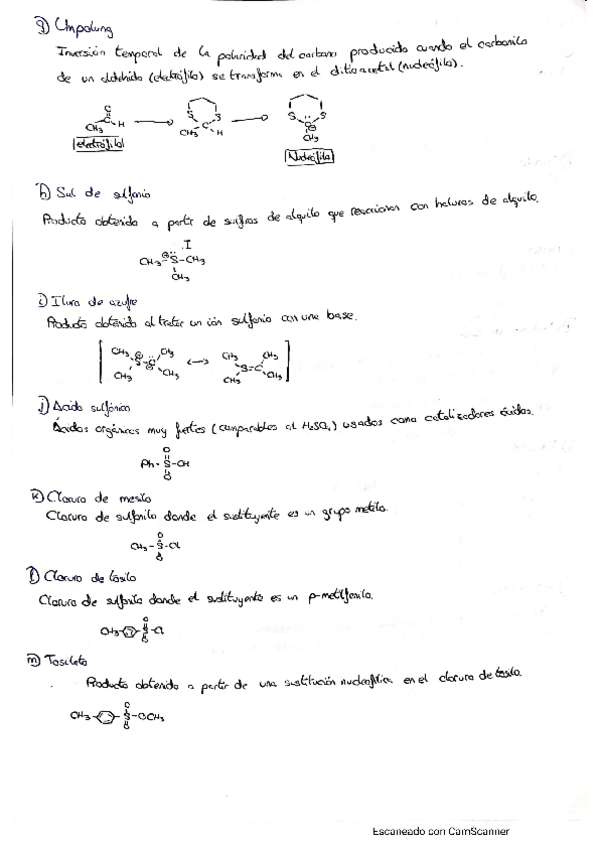 g) Umpolung
Inversión temporal de la polaridad del carbono producido cuando el carbonilo
de un aldehído (electrófilo) se transforma en el ditioacetal (nucleófilo).
O
C
CH3 H
S S
C
CH3 H
S S
C
CH3
electrófilo
Nucleófilo
h) Sal de sulfonio
Producto obtenido a partir de sulfuros de alquilo que reaccionan con haluros de alquilo.
I
CH3 S-CH3
CH3
i) Iluro de azufre
Producto obtenido al tratar un ión sulfonio con una base.
CH3 CH3 CH3 CH3
S-C S=C
CH3 CH3 CH3 CH3
j) Ácido sulfónico
Ácidos orgánicos muy fuertes (comparables al H2SO4) usados como catalizadores ácidos.
O
Ph-S-OH
O
k) Cloruro de mesilo
Cloruro de sulfonilo donde el sustituyente es un grupo metilo.
O
CH3-S-Cl
O
l) Cloruro de tosilo
Cloruro de sulfonilo donde el sustituyente es un p-metilfenilo.
O
CH3 S-Cl
O
m) Tosilato
Producto obtenido a partir de una sustitución nucleofílica en el cloruro de tosilo.
O
CH3 S-OCH3
O
Escaneado con CamScanner